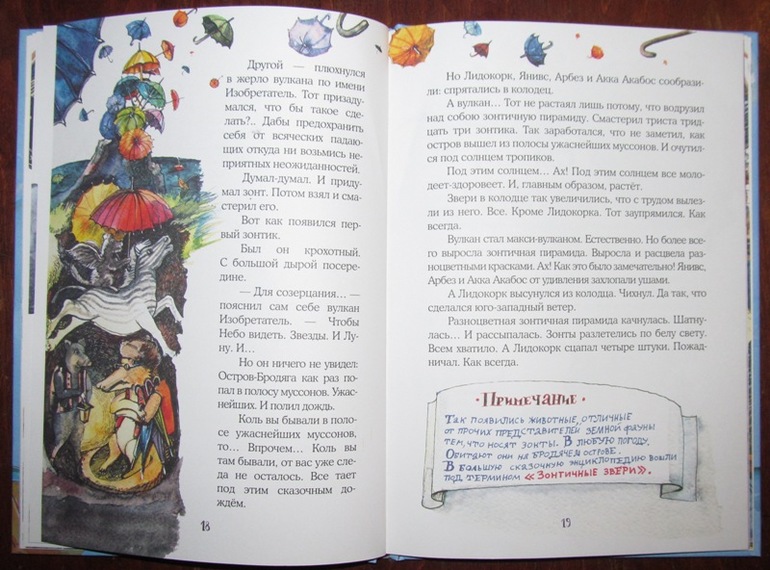 Другой — плюхнулся
в жерло вулкана по имени
Изобретатель. Тот призаду-
мался, что бы такое сде-
лать?.. Дабы предохранить
себя от всяческих падаю-
щих откуда ни возьмись не-
приятных неожиданностей.
Думал-думал. И приду-
мал зонт. Потом взял и сма-
стерил его.
Вот как появился пер-
вый зонтик.
Был он крохотный.
С большой дырой посере-
дине.
— Для созерцания... —
пояснил сам себе вулкан
Изобретатель. — Чтобы
Небо видеть. Звезды. И Лу-
ну. И...
Но он ничего не увидел:
Остров-Бродяга как раз по-
пал в полосу муссонов. Ужас-
нейших. И полил дождь.
Коль вы бывали в поло-
се ужаснейших муссонов,
то... Впрочем... Коль вы
там бывали, от вас уже сле-
да не осталось. Все тает
под этим сказочным дож-
дём.
18
Но Лидокорк, Янивс, Арбез и Акка Акабос сообрази-
ли: спрятались в колодец.
А вулкан... Тот не растаял лишь потому, что водрузил
над собою зонтичную пирамиду. Смастерил триста трид-
цать три зонтика. Так заработался, что не заметил, как
остров вышел из полосы ужаснейших муссонов. И очутил-
ся под солнцем тропиков.
Под этим солнцем... Ах! Под этим солнцем все моло-
деет-здоровеет. И, главным образом, растёт.
Звери в колодце так увеличились, что с трудом вылез-
ли из него. Все. Кроме Лидокорка. Тот заупрямился. Как
всегда.
Вулкан стал макси-вулканом. Естественно. Но более все-
го выросла зонтичная пирамида. Выросла и расцвела раз-
ноцветными красками. Ах! Как это было замечательно! Янивс,
Арбез и Акка Акабос от удивления захлопали ушами.
А Лидокорк высунулся из колодца. Чихнул. Да так, что
сделался юго-западный ветер.
Разноцветная зонтичная пирамида качнулась. Шатну-
лась... И рассыпалась. Зонты разлетелись по белу свету.
Всем хватило. А Лидокорк сцапал четыре штуки. Пожад-
ничал. Как всегда.
• Примечание •
Так появились животные, отличные
от прочих представителей земной фауны
тем, что носят зонты. В любую погоду.
Обитают они на Бродячем острове.
В большую сказочную энциклопедию вошли
под термином «Зонтичные звери».
19